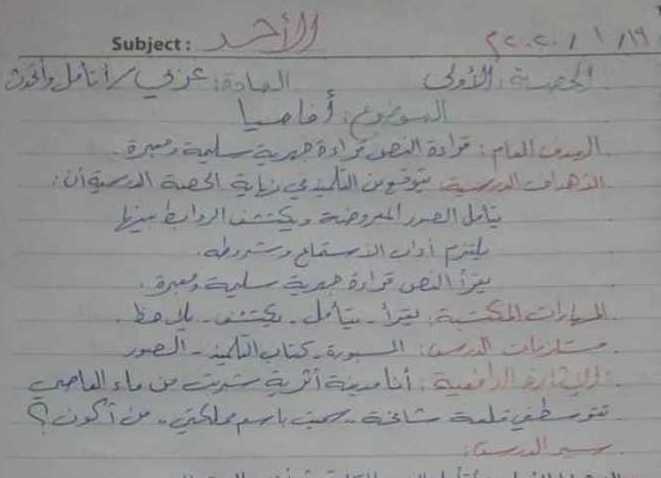 Subject: الأحد ١٩ / ١ / ٢٠٢٠م
الحصة: الأولى المادة: عربي / أتأمل وأتحدث
الموضوع: أفاميا
الهدف العام: قراءة النص قراءة جهرية سليمة ومعبرة.
الأهداف الدرسية: يتوقع من التلميذ في نهاية الحصة الدرسية أن:
يتأمل الصور المعروضة ويكتشف الروابط بينها
يلتزم آداب الاستماع وشروطه.
يقرأ النص قراءة جهرية سليمة ومعبرة.
المهارات المكتسبة: يقرأ - يتأمل - يكتشف - يلاحظ.
مستلزمات الدرس: السبورة - كتاب التلميذ - الصور
الإثارة الدافعية: أنا مدينة أثرية شربت من ماء العاصي
تتوسطني قلعة شامخة .. سميت باسم مملكتي .. من أكون؟
سير الدرس: